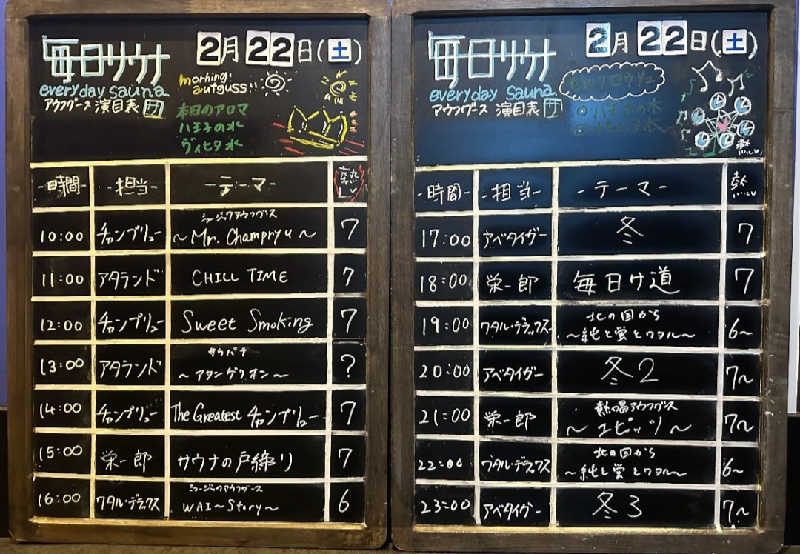 毎日サウナ
2月22日(土)
everyday sauna
アウフグース 演目表
morning
aufguss
本日のアロマ
八王子の水
ヴィヒタ水
-時間- -担当- -テーマ- 熱
10:00 チャンプリュー ミュージックアウフグース 7
〜Mr. Champryu〜
11:00 アタランド CHILL TIME 7
12:00 チャンプリュー Sweet Smoking 7
13:00 アタランド ?
〜アタンゲリオン〜
14:00 チャンプリュー The Greatest チャンプリュー 7
15:00 栄一郎 サウナの戸締り 7
16:00 ワタル・デラックス ミュージックアウフグース 6
WAI〜Story〜
毎日サウナ
2月22日(土)
everyday sauna
アウフグース 演目表
-時間- -担当- -テーマ- 熱
17:00 アベタイザー 冬 7
18:00 栄一郎 毎日け道 7
19:00 ワタル・デラックス 北の国から 6〜
〜純と蛍とワタル〜
20:00 アベタイザー 冬2 7〜
21:00 栄一郎 7〜
〜ユビッツ〜
22:00 ワタル・デラックス 北の国から 6〜
〜純と蛍とワタル〜
23:00 アベタイザー 冬3 7〜